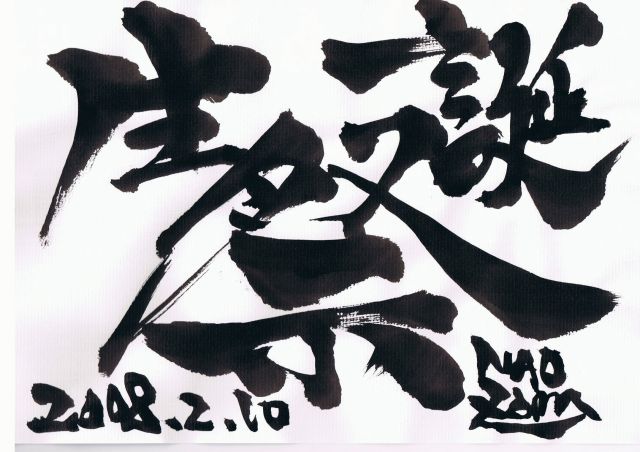 生誕
祭
2008.2.10
NAO